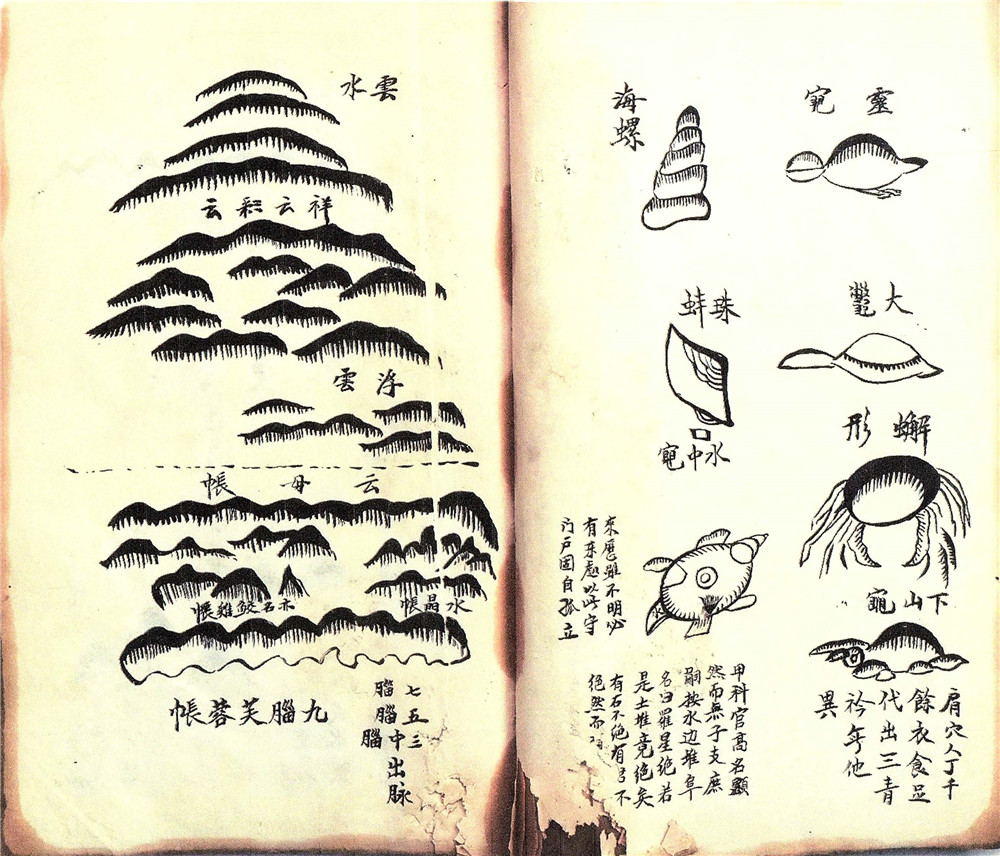 靈龜
大鼈
蠏形
下山龜
肩穴人丁千
餘衣食足
代出三青
衿年他
異
海螺
珠蚌
水中龜
來歷雖不明必
有来處以此守
门户固自孤立
甲科官高名顯
然而無子支庶
嗣按水边堆阜
名曰羅星绝若
是土堆竟绝矣
有石不绝有弓不
绝然不
雲水
祥云彩云
浮雲
云母帳
水晶帳
亦名鮫雞帳
九腦芙蓉帳
七腦
五腦
三腦
中出脉